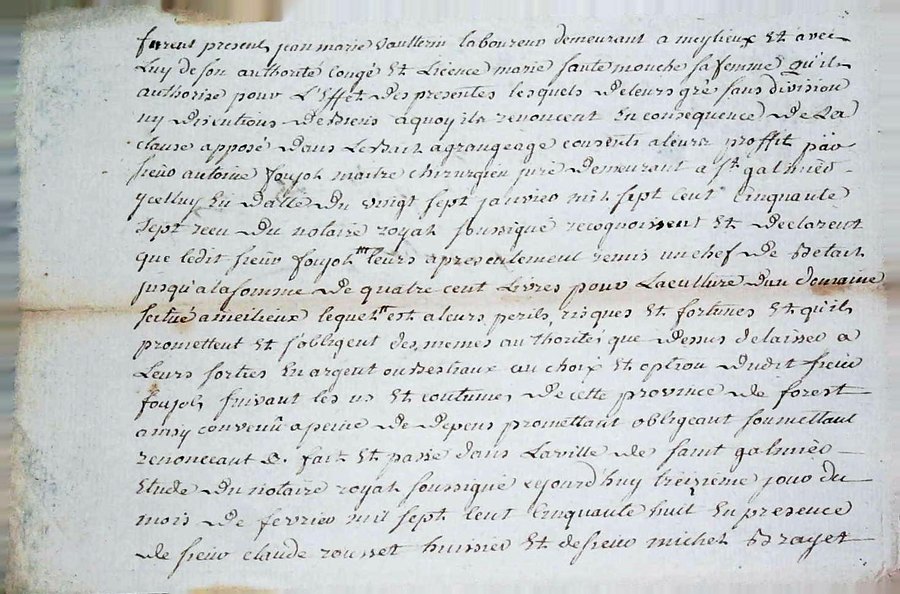 furent present jean marie vaullerin laboureur demeurant a meylieux Et avec
Luy de son authorité congé Et Licence marie sautemouche sa femme qu'il
authorise pour L'Effet des presentes lesquels de leurs grés sans division
ny disentions de Biens a quoy ils renoncent En consequence de La
clause apposé dans Le Bail a grangeage consenti a leurs proffit par
sieur antoine foujols maitre chirurgien juré demeurant a st galmier
ycelluy En datte du vingt sept janvier mil sept cent Cinquante
sept receu du notaire royal soussigné recognoissent Et declarent
que ledit sieur foujols leurs a presentement remis un chef de Betail
jusqu'a la somme de quatre cent Livres pour La culture d'un domaine
scitué a meilieux lequel est a leurs perils, risques Et fortunes Et qu'ils
promettent Et s'obligent des memes authorités que dessus de laisser a
Leurs sorties En argent ou Bestiaux au choix Et option dudit sieur
foujols suivant les us Et coutumes de cette province de forest
ainsy convenû a peine de depens promettant obligeant soumettant
renonceant &. fait Et passé dans La ville de saint galmier
Etude du notaire royal soussigné cejourd'huy treizieme jour du
mois de fevrier mil sept Cent Cinquante huit En presence
de sieur claude rousset huissier Et de sieur michel Brayet